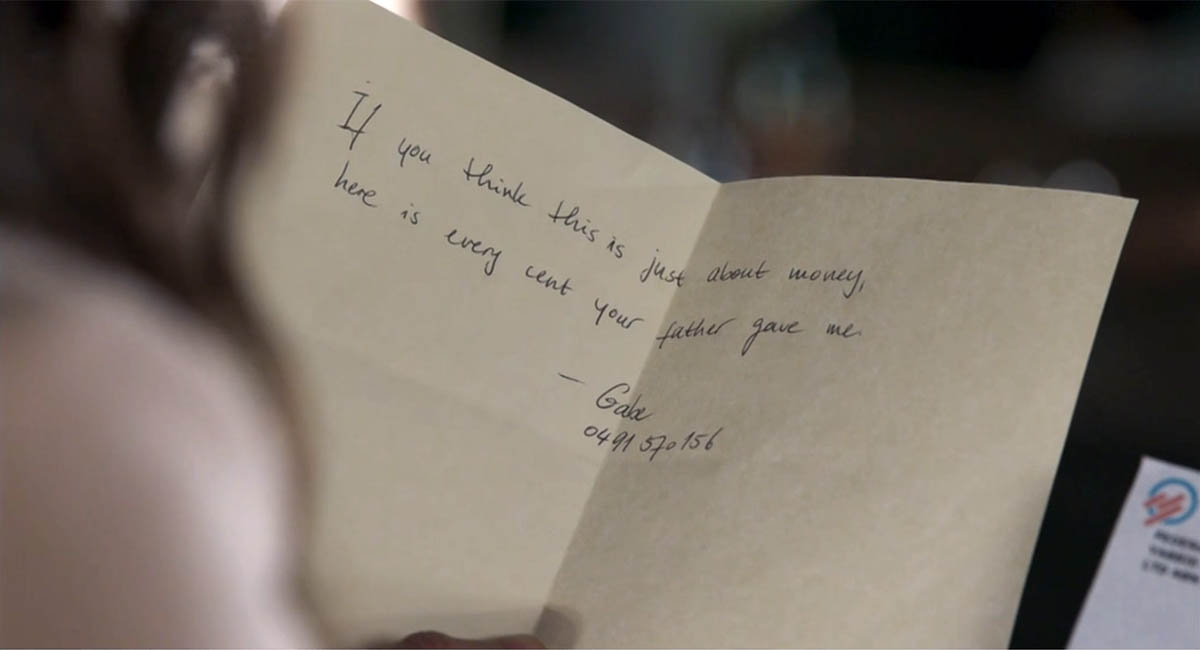 If you think this is just about money,
here is every cent your father gave me.
— Gabe
0491 570 156